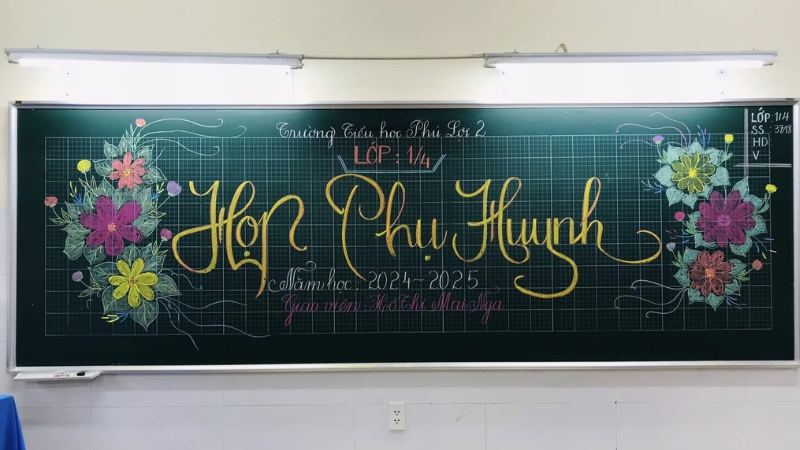 Trường Tiểu học Phú Lợi 2
LỚP: 1/4
Họp Phụ Huynh
Năm học: 2024-2025
Giáo viên: Hồ Thị Mai Nga
LỚP: 1/4
SS: 37/18
HD:
V